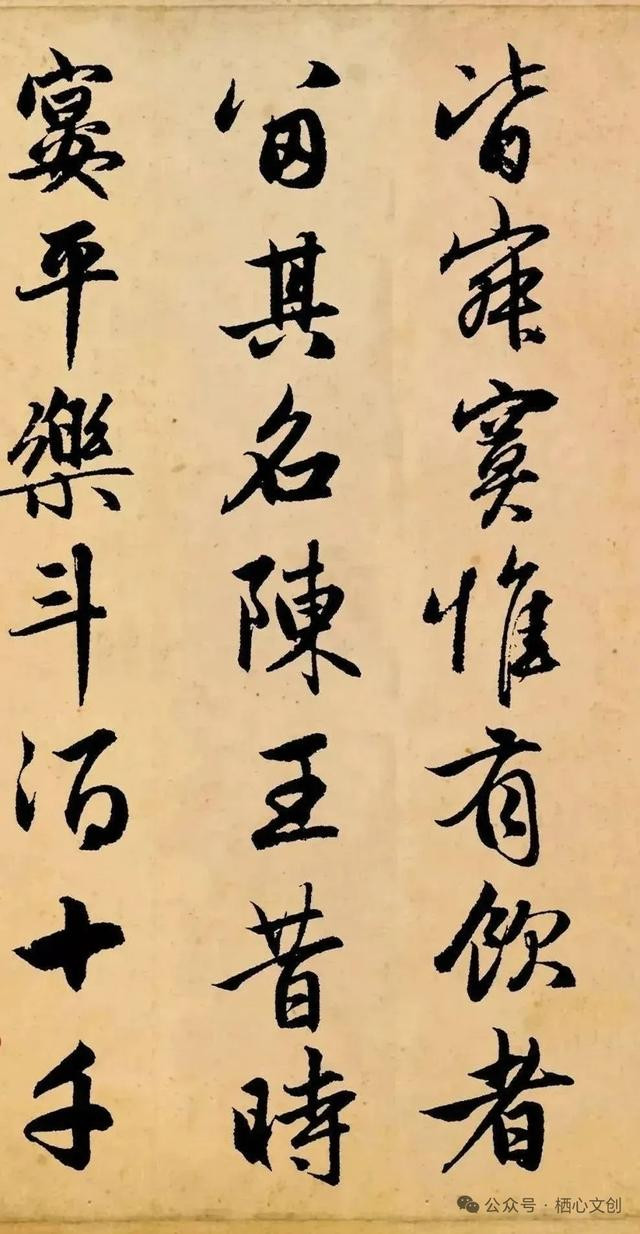 皆寂寞惟有飲者
留其名陳王昔時
宴平樂斗酒十千
公众号·栖心文创